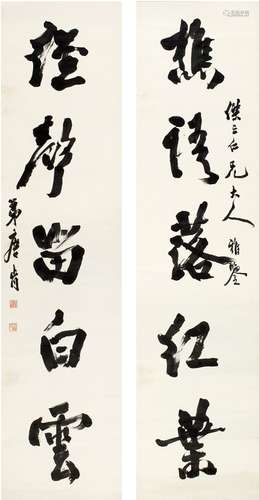 樵語落紅葉
傑三仁兄大人雅鑒
經聲留白雲
弟唐肯